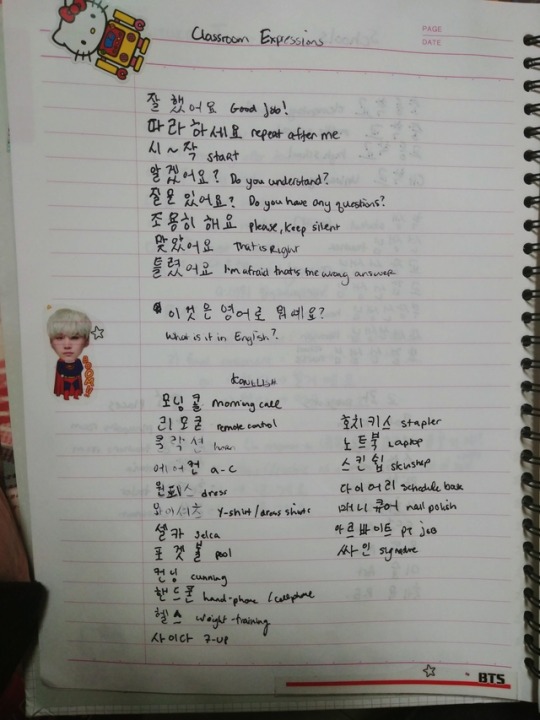 Classroom Expressions
PAGE
DATE
잘 했어요 Good Job!
따라 하세요 repeat after me
시~작 start
알겠어요? Do you understand?
질문 있어요? Do you have any questions?
조용히 해요 please, keep silent
맞았어요 That is Right
틀렸어요 I'm afraid that's the wrong answer
이것은 영어로 뭐예요?
What is it in English?
Konglish
모닝콜 morning call
리모콘 remote control
호치키스 stapler
클락션
노트북 Laptop
에어컨 a-c
스킨쉽 skinship
원피스 dress
다이어리 schedule book
와이셔츠 Y-shirt /
매니큐어 nail polish
셀카 selca
아르바이트 pt job
포켓볼 pool
싸인 signature
컨닝 cunning
핸드폰 hand-phone / cellphone
헬스 weight-training
사이다 7-UP
BTS